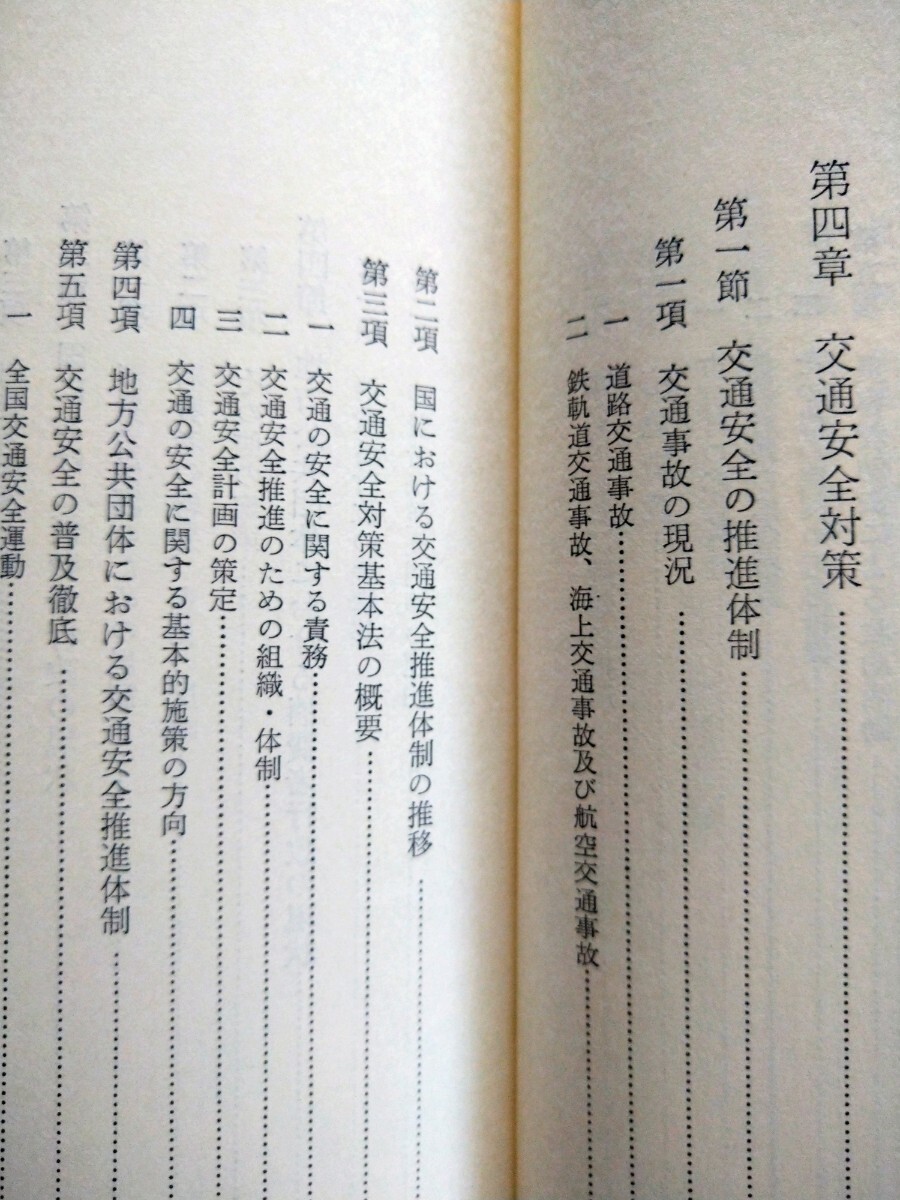 第四章　交通安全対策……………………
第一節　交通安全の推進体制……………………
第一項　交通事故の現況……………………
一　道路交通事故……………………
二　鉄軌道交通事故、海上交通事故及び航空交通事故……………………
第二項　国における交通安全推進体制の推移……………………
第三項　交通安全対策基本法の概要……………………
一　交通の安全に関する責務……………………
二　交通安全推進のための組織・体制……………………
三　交通安全計画の策定……………………
四　交通の安全に関する基本的施策の方向……………………
第四項　地方公共団体における交通安全推進体制……………………
第五項　交通安全の普及徹底……………………
一　全国交通安全運動……………………